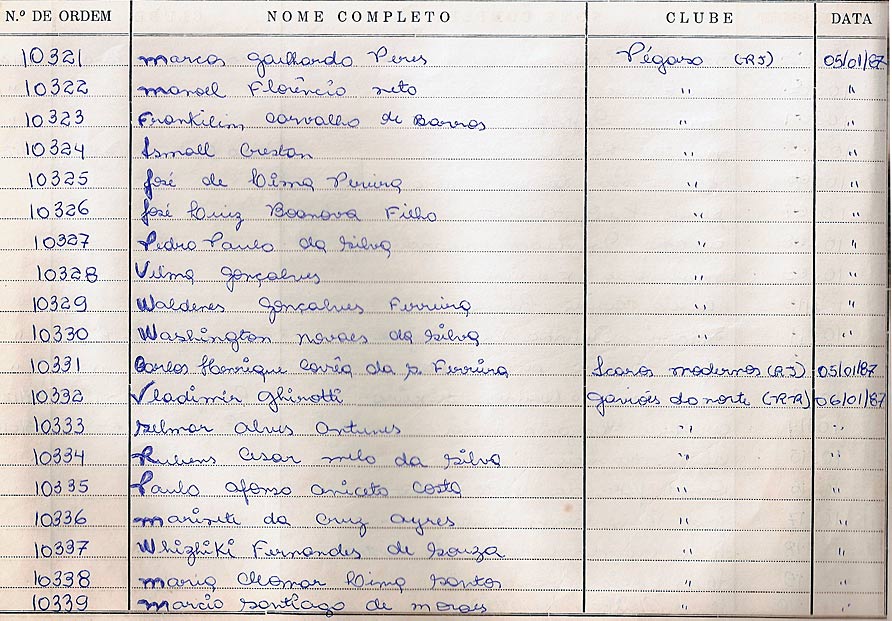 N.º DE ORDEM NOME COMPLETO CLUBE DATA
10321 Marcos Gailhardo Peres Pégaso (RJ) 05/01/87
10322 Manoel Florêncio Neto " "
10323 Frankilim Carvalho de Barros " "
10324 Ismall Creston " "
10325 José de Lima Pereira " "
10326 José Luiz Boanova Filho " "
10327 Pedro Paulo da Silva " "
10328 Vilma Gonçalves " "
10329 Waldenes Gonçalves Ferreira " "
10330 Washington Novaes da Silva " "
10331 Carlos Henrique Corrêa da P. Ferreira Icaros Modernos (RJ) 05/01/87
10332 Vladimir Ghinotti Gaviões do Norte 06/01/87
10333 Alves Antunes " "
10334 Rubens Cesar Melo da Silva " "
10335 Paulo Afonso Aniceto Costa " "
10336 Marinete da Cruz Ayres " "
10337 Whizhiki Fernandes de Souza " "
10338 Maria Cleomar Lima Santos " "
10339 Marcio Santiago de Moraes " "